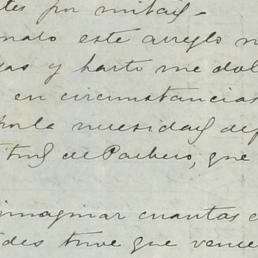 tes por mitad.
malo este arreglo n
as y harto me dol
en circunstancias
por la necesidad de
de Pacheco, que
imaginar cuantas
des tuve que vence